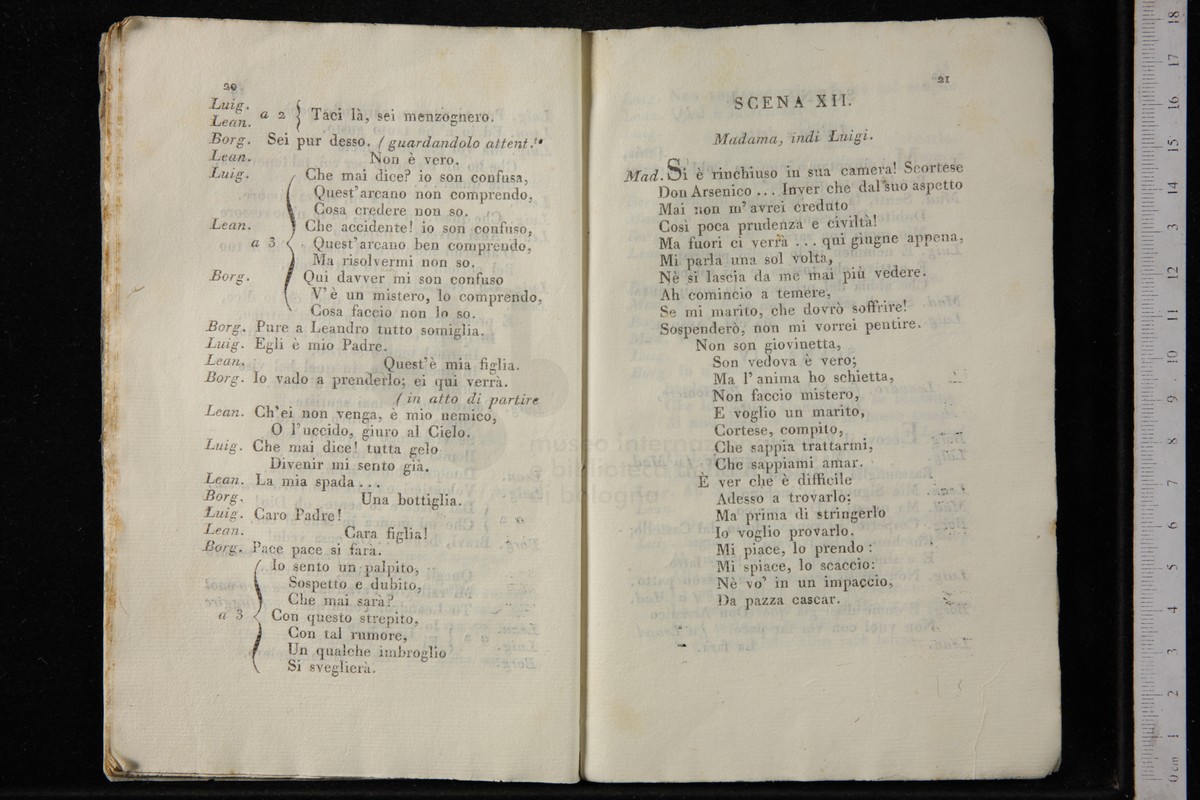 20
Luig.
Lean. a 2 Taci là, sei menzognero.
Borg. Sei pur desso. (guardandolo attent.te
Lean. Non è vero.
Luig. Che mai dice? io son confusa,
Quest'arcano non comprendo,
Cosa credere non so.
Lean. Che accidente! io son confuso,
a 3 Quest'arcano ben comprendo,
Ma risolvermi non so.
Borg. Qui davver mi son confuso
V'è un mistero, lo comprendo,
Cosa faccio non lo so.
Borg. Pure a Leandro tutto somiglia.
Luig. Egli è mio Padre.
Lean. Quest'è mia figlia.
Borg. Io vado a prenderlo; ei qui verrà.
(in atto di partire
Lean. Ch'ei non venga, è mio nemico,
O l'uccido, giuro al Cielo.
Luig. Che mai dice! tutta gelo
Divenir mi sento già.
Lean. La mia spada...
Borg. Una bottiglia.
Luig. Caro Padre!
Lean. Cara figlia!
Borg. Pace pace si farà.
Io sento un palpito,
Sospetto e dubito,
Che mai sarà?
a 3 Con questo strepito,
Con tal rumore,
Un qualche imbroglio
Si sveglierà.
21
SCENA XII.
Madama, indi Luigi.
Mad. Si è rinchiuso in sua camera! Scortese
Don Arsenico... Inver che dal suo aspetto
Mai non m'avrei creduto
Così poca prudenza e civiltà!
Ma fuori ci verrà... qui giugne appena,
Mi parla una sol volta,
Nè si lascia da me mai più vedere.
Ah comincio a temere,
Se mi marito, che dovrò soffrire!
Sospenderò, non mi vorrei pentire.
Non son giovinetta,
Son vedova è vero;
Ma l'anima ho schietta,
Non faccio mistero,
E voglio un marito,
Cortese, compito,
Che sappia trattarmi,
Che sappiami amar.
È ver che è difficile
Adesso a trovarlo:
Ma prima di stringerlo
Io voglio provarlo.
Mi piace, lo prendo:
Mi spiace, lo scaccio:
Nè vo' in un impaccio,
Da pazza cascar.
museo internaz
e biblioteca
di bologna
0 cm 1 2 3 4 5 6 7 8 9 10 11 12 13 14 15 16 17 18